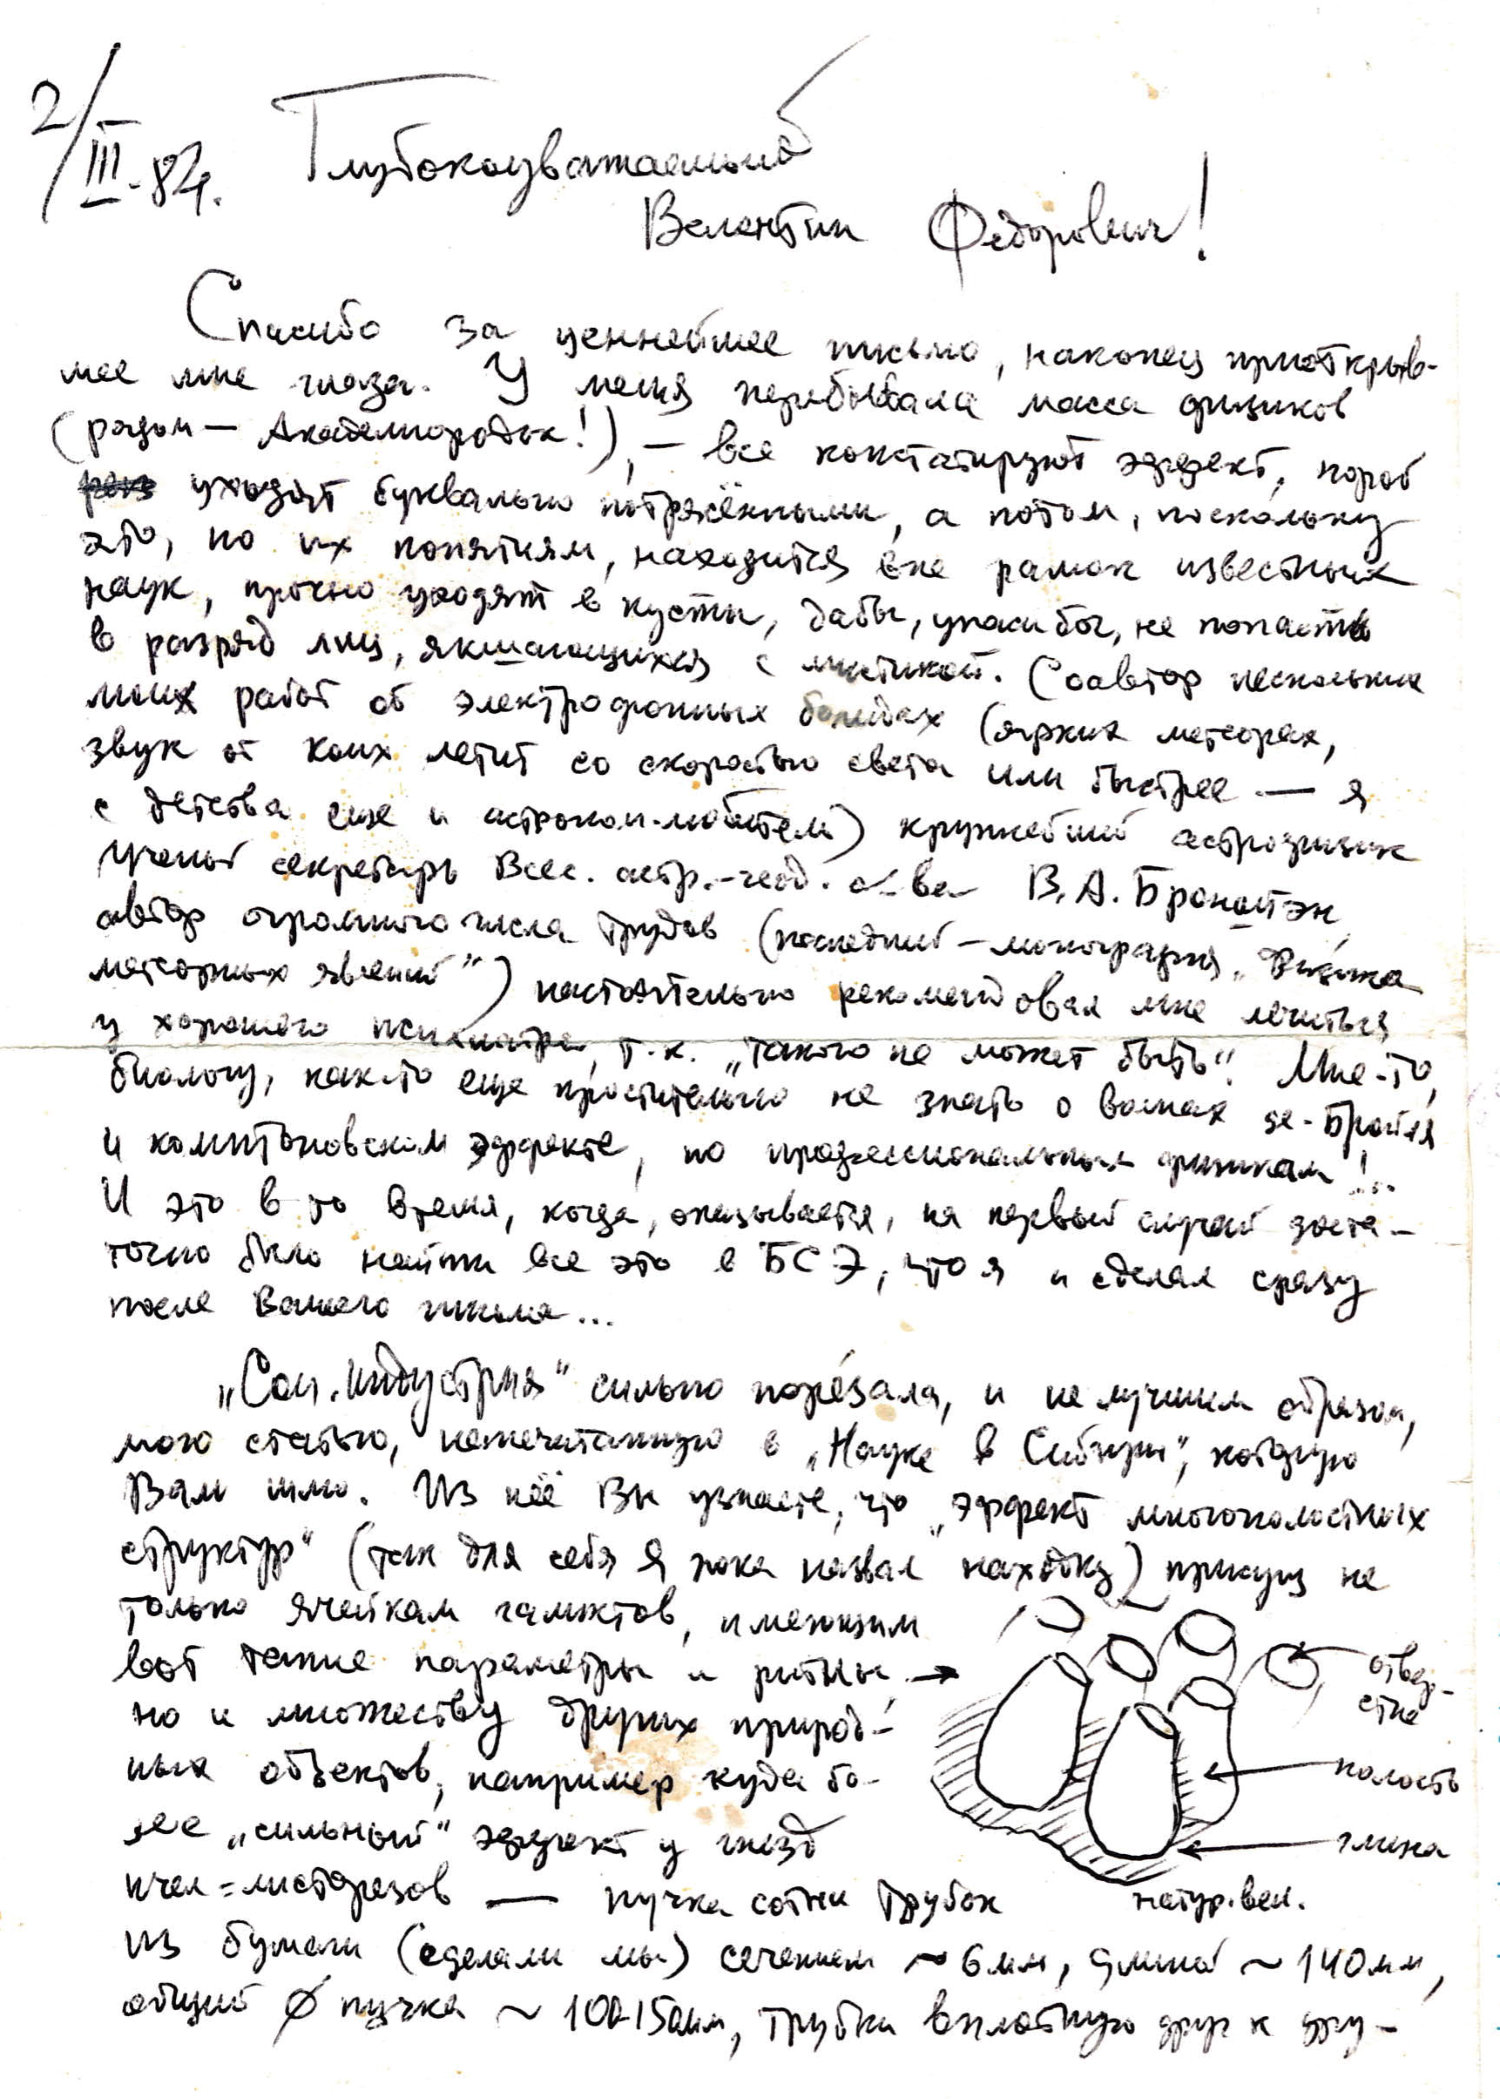 2/III-84.
Глубокоуважаемый
Валентин Федорович!
Спасибо за ценнейшее письмо, наконец приоткрыв-
шее мне глаза. У меня перебывала масса физиков
(рядом — Академгородок!), — все констатируют эффект, порой
уходят буквально потрясёнными, а потом, поскольку
это, по их понятиям, находится вне рамок известных
наук, прочно уходят в кусты, дабы, упаси бог, не попасть
в разряд лиц, якшающихся с мистикой. Соавтор нескольких
моих работ об электрофонных болидах (ярких метеорах,
звук от коих летит со скоростью света или быстрее — я
с детства еще и астроном-любитель) крупнейший астрофизик
Ученый секретарь Всес. астр.-геод. о-ва В.А. Бронштэн,
автор огромного числа трудов (последний — монография „Физика
метеорных явлений") настоятельно рекомендовал мне лечиться
у хорошего психиатра, т.к. „такого не может быть". Мне-то,
биологу, как-то еще простительно не знать о волнах де-Бройля
и комптоновском эффекте, но профессиональным физикам!..
И это в то время, когда, оказывается, на первый случай доста-
точно было найти все это в БСЭ, что я и сделал сразу
после Вашего письма...
„Соц. индустрия" сильно порезала, и не лучшим образом,
мою статью, напечатанную в „Науке в Сибири", которую
Вам шлю. Из неё Вы узнаете, что „эффект многополостных
структур" (так для себя я пока назвал находку) присущ не
только ячейкам галиктов, имеющим
вот такие параметры и ритмы,
но и множеству других природ-
ных объектов, например куда бо-
лее „сильный" эффект у гнезд
пчел-листорезов — пучка сотни трубок
из бумаги (сделали мы) сечением ~ 6 мм, длиной ~ 140 мм,
общий ϕ пучка ~ 100-150мм, трубки вплотную друг к дру-
отвер-
стие
полость
глина
натур. вел.